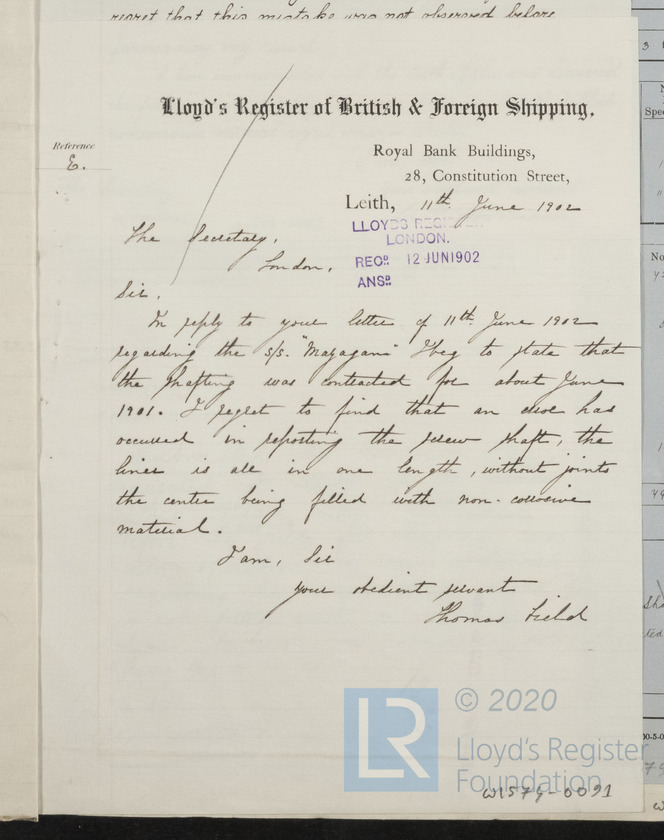 regret that this mistake was not observed before
Lloyd's Register of British & Foreign Shipping,
Reference
E.
Royal Bank Buildings,
28, Constitution Street,
Leith, 11th June 1902
LLOYDS REGISTER
LONDON.
RECD. 12 JUN 1902
ANSD.
The Secretary,
London,
Sir,
In reply to your letter of 11th June 1902
regarding the s/s. "Mazagan" I beg to state that
the shafting was contracted for about June
1901. I regret to find that an error has
occurred in reporting the screw shaft, the
liner is all in one length, without joints
the centre being filled with non-corrosive
material.
I am, Sir
your obedient servant
Thomas Field
LR
© 2020
Lloyd's Register
Foundation
W1579-0091